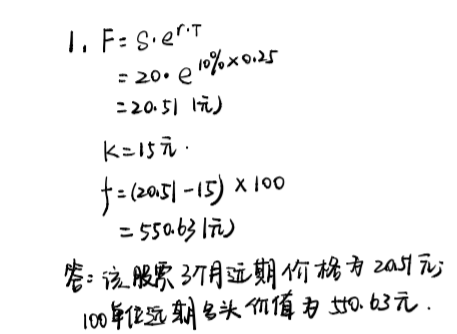 1. F=S·e^r·T
=20·e^10%×0.25
=20.51 (元)
K=15元.
f=(20.51-15)×100
=550.63(元)
答:该股票3个月远期价格为20.51元;
100单位远期多头价值为550.63元.